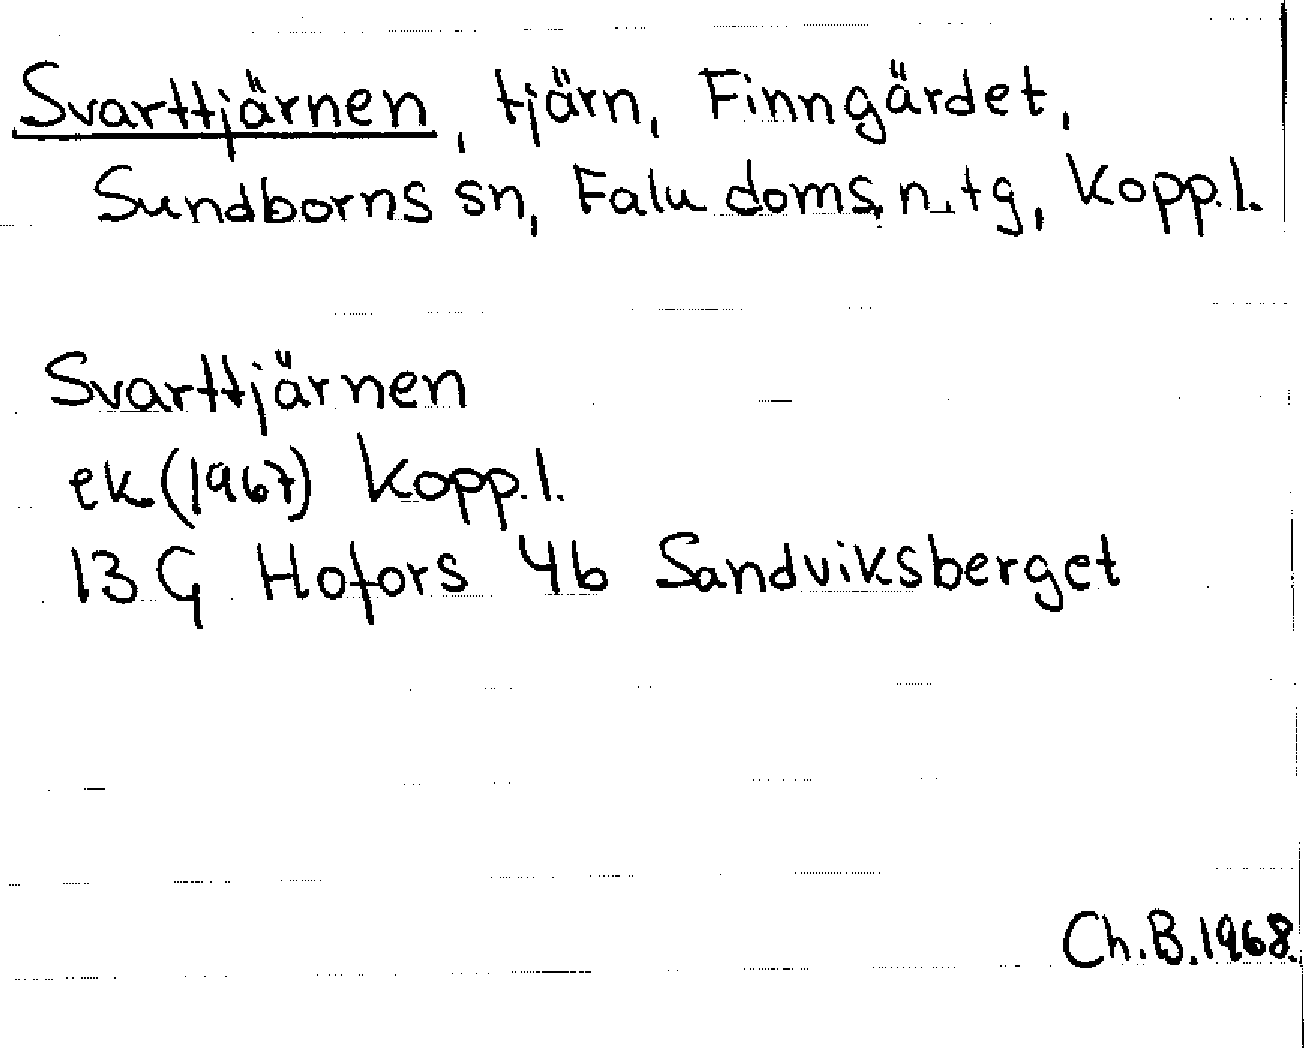 Svarttjärnen, tjärn, Finngärdet,
Sundborns sn, Falu doms. n. tg, Kopp. l.
Svarttjärnen
ek (1967) Kopp. l.
13 G Hofors 4b Sandviksberget
Ch. B. 1968.